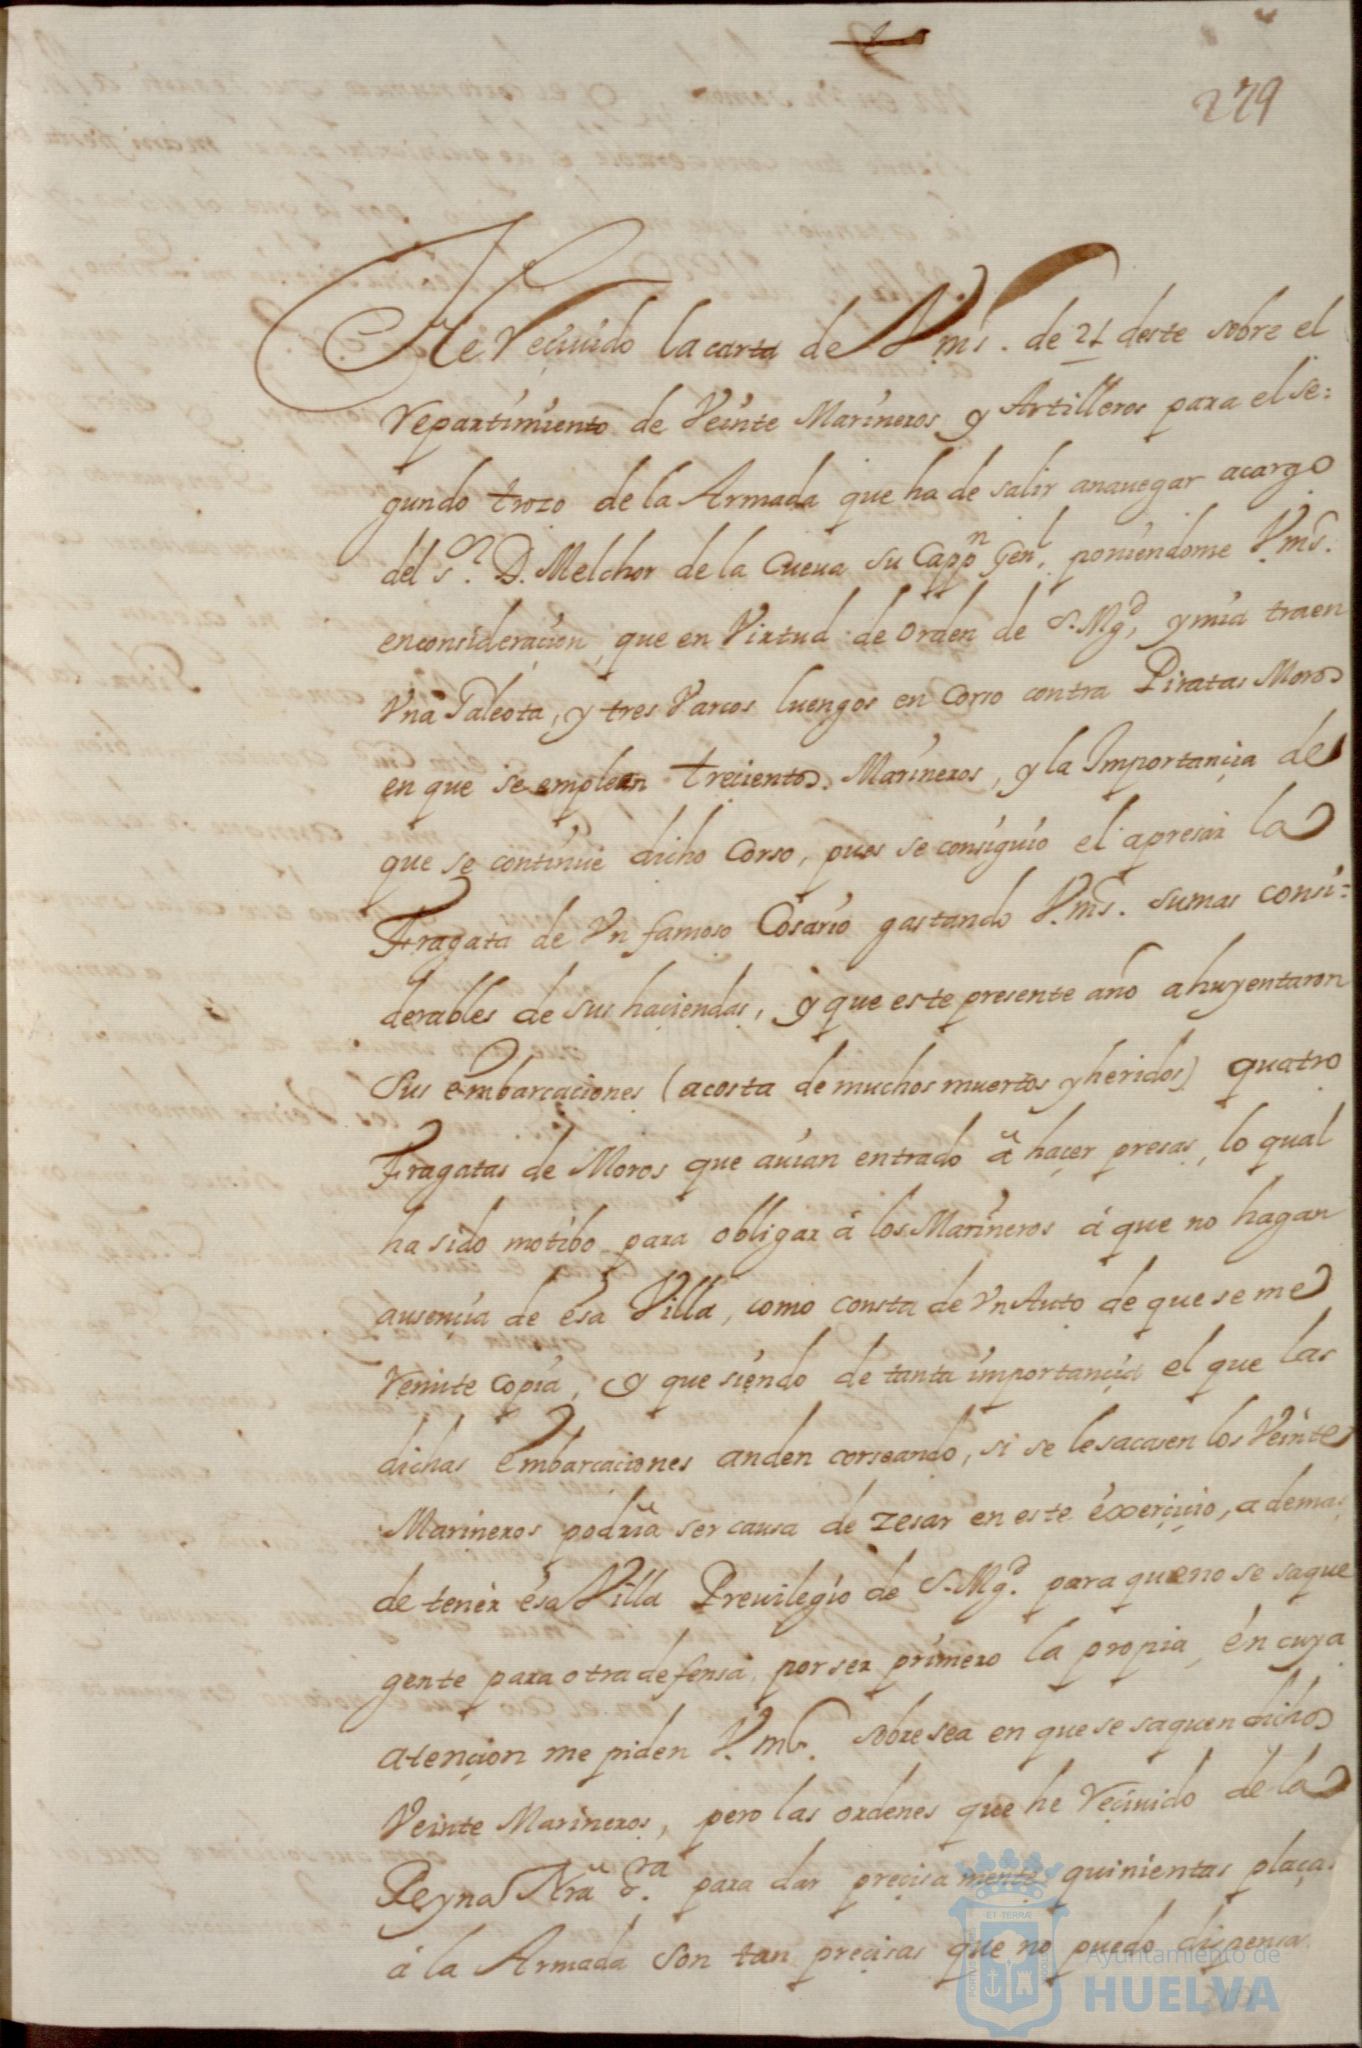 279
He reciuido la carta de Vms. de 21 deste sobre el
repartimiento de Veinte Marineros y Artilleros para el se=
gundo trozo de la Armada que ha de salir anauegar acargo
del sor. D. Melchor de la Cueua su Cappn Genl, poniendome Vms.
enconsideracion, que en Virtud de orden de S. Mgd, y mia traen
Vna Galeota, y tres Varcos luengos en Corso contra Piratas Moros
en que se emplean treçientos Marineros, y la Importançia de
que se continue dicho Corso, pues se consiguio el apresar la
Fragata de Vn famoso Cosario gastando Vms. sumas consi=
derables de sus haçiendas, y que este presente año ahuyentaron
sus embarcaciones (acosta de muchos muertos y heridos) quatro
Fragatas de Moros que auian entrado â haçer presas, lo qual
ha sido motibo para obligar á los Marineros á que no hagan
ausençia de esa Villa, como consta de Vn Auto de que se me
remite copia, y que siendo de tanta importançia el que las
dichas embarcaciones anden corseando, si se le sacasen los Veinte
Marineros podria ser causa de zesar en este exerçiçio, a demas
de tener esa Villa Preuilegio de S. Mgd. para que no se saque
gente para otra defensa por ser primero la propia, en cuya
atençion me piden Vms. sobresea en que se saquen dichos
Veinte Marineros, pero las ordenes que he reçiuido de la
Reyna Nra Sra. para dar preçisamente quinientas plaças
á la Armada son tan preçisas que no puedo dispensar
Ayuntamiento de
HUELVA